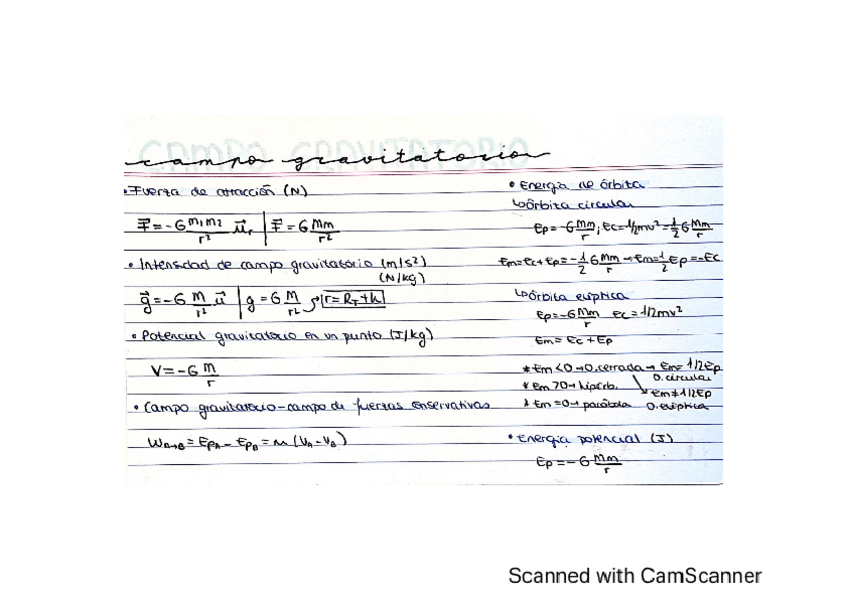 campo gravitatorio
• Fuerza de atracción (N)
F⃗ = -G m₁m₂/r² u⃗ᵣ | F⃗ = G Mm/r²
• Intensidad de campo gravitatorio (m/s²)
(N/kg)
g⃗ = -G M/r² u⃗ | g = G M/r² → r = R_T + h
• Potencial gravitatorio en un punto (J/kg)
V = -G m/r
• Campo gravitatorio - campo de fuerzas conservativas
W_A→B = Ep_A - Ep_B = m (V_A - V_B)
• Energía de órbita
↳ órbita circular
Ep = -G Mm/r ; Ec = 1/2mv² = 1/2 G Mm/r
Em = Ec + Ep = -1/2 G Mm/r → Em = 1/2 Ep = -Ec
↳ órbita elíptica
Ep = -G Mm/r Ec = 1/2mv²
Em = Ec + Ep
* Em < 0 → O. cerrada → Em = 1/2Ep
O. circular
* Em > 0 → hipérb. ↘ Em ≠ 1/2Ep
* Em = 0 → parábola O. elíptica
• Energía potencial (J)
Ep = -G Mm/r
Scanned with CamScanner